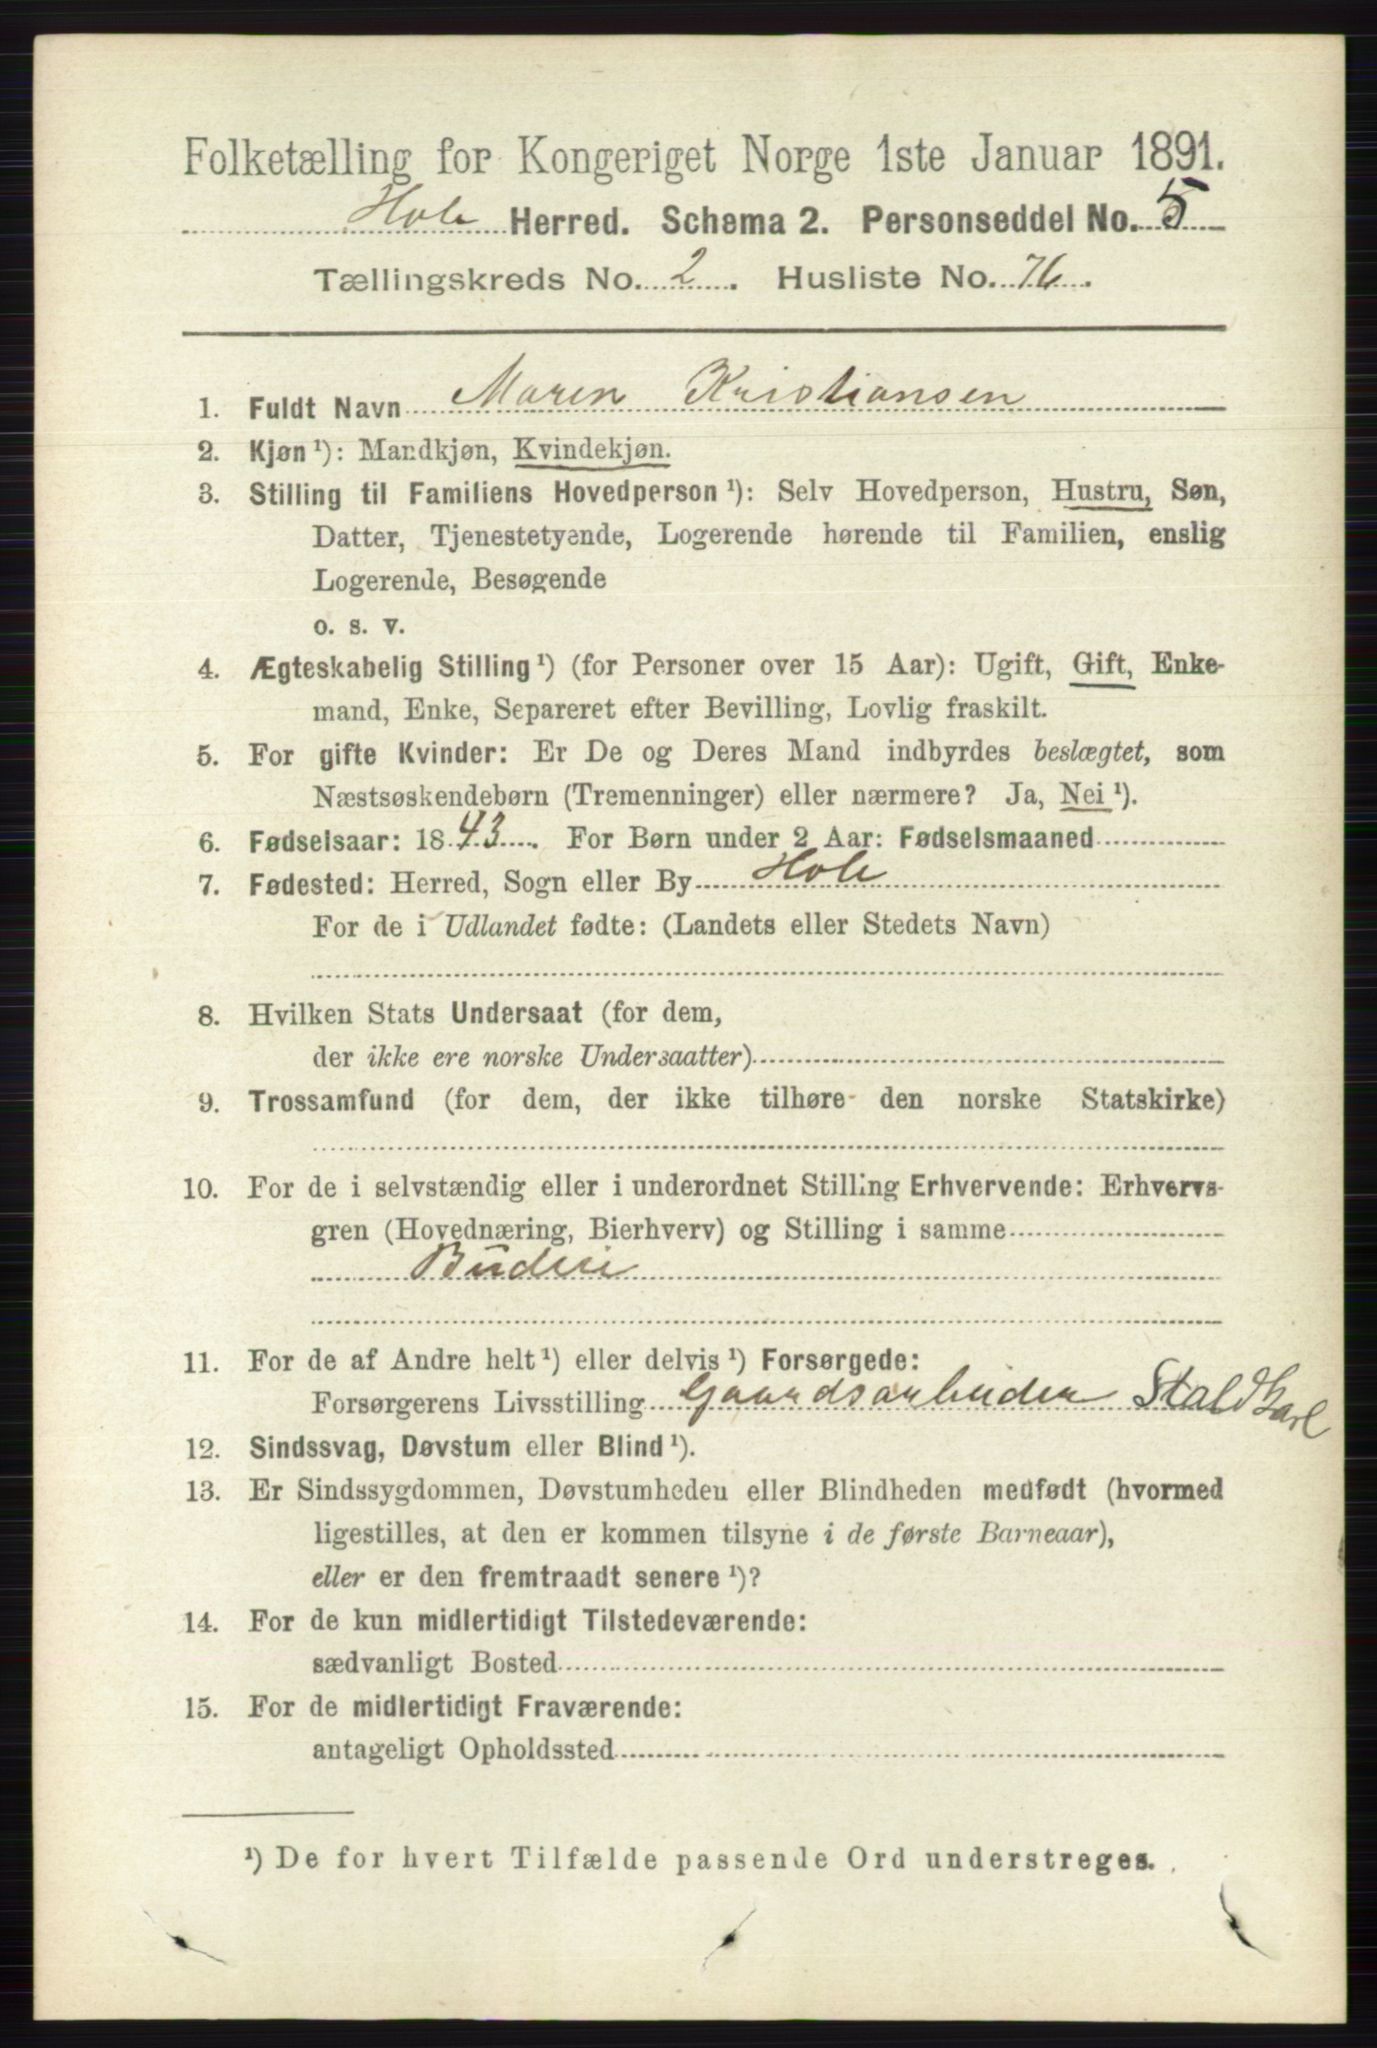 Folketælling for Kongeriget Norge 1ste Januar 1891.
Hole Herred. Schema 2. Personseddel No. 5
Tællingskreds No. 2. Husliste No. 76.
1. Fuldt Navn Maren Kristiansen
2. Kjøn¹): Mandkjøn, Kvindekjøn.
3. Stilling til Familiens Hovedperson¹): Selv Hovedperson, Hustru, Søn,
Datter, Tjenestetyende, Logerende hørende til Familien, enslig
Logerende, Besøgende
o. s. v.
4. Ægteskabelig Stilling¹) (for Personer over 15 Aar): Ugift, Gift, Enke-
mand, Enke, Separeret efter Bevilling, Lovlig fraskilt.
5. For gifte Kvinder: Er De og Deres Mand indbyrdes beslægtet, som
Næstsøskendebørn (Tremenninger) eller nærmere? Ja, Nei¹).
6. Fødselsaar: 1843. For Børn under 2 Aar: Fødselsmaaned
7. Fødested: Herred, Sogn eller By Hole
For de i Udlandet fødte: (Landets eller Stedets Navn)
8. Hvilken Stats Undersaat (for dem,
der ikke ere norske Undersaatter)
9. Trossamfund (for dem, der ikke tilhøre den norske Statskirke)
10. For de i selvstændig eller i underordnet Stilling Erhvervende: Erhvervs-
gren (Hovednæring, Bierhverv) og Stilling i samme
Budeie
11. For de af Andre helt¹) eller delvis¹) Forsørgede:
Forsørgerens Livsstilling Gaardsarbeider Staldkarl
12. Sindssvag, Døvstum eller Blind¹).
13. Er Sindssygdommen, Døvstumheden eller Blindheden medfødt (hvormed
ligestilles, at den er kommen tilsyne i de første Barneaar),
eller er den fremtraadt senere¹)?
14. For de kun midlertidigt Tilstedeværende:
sædvanligt Bosted
15. For de midlertidigt Fraværende:
antageligt Opholdssted
¹) De for hvert Tilfælde passende Ord understreges.